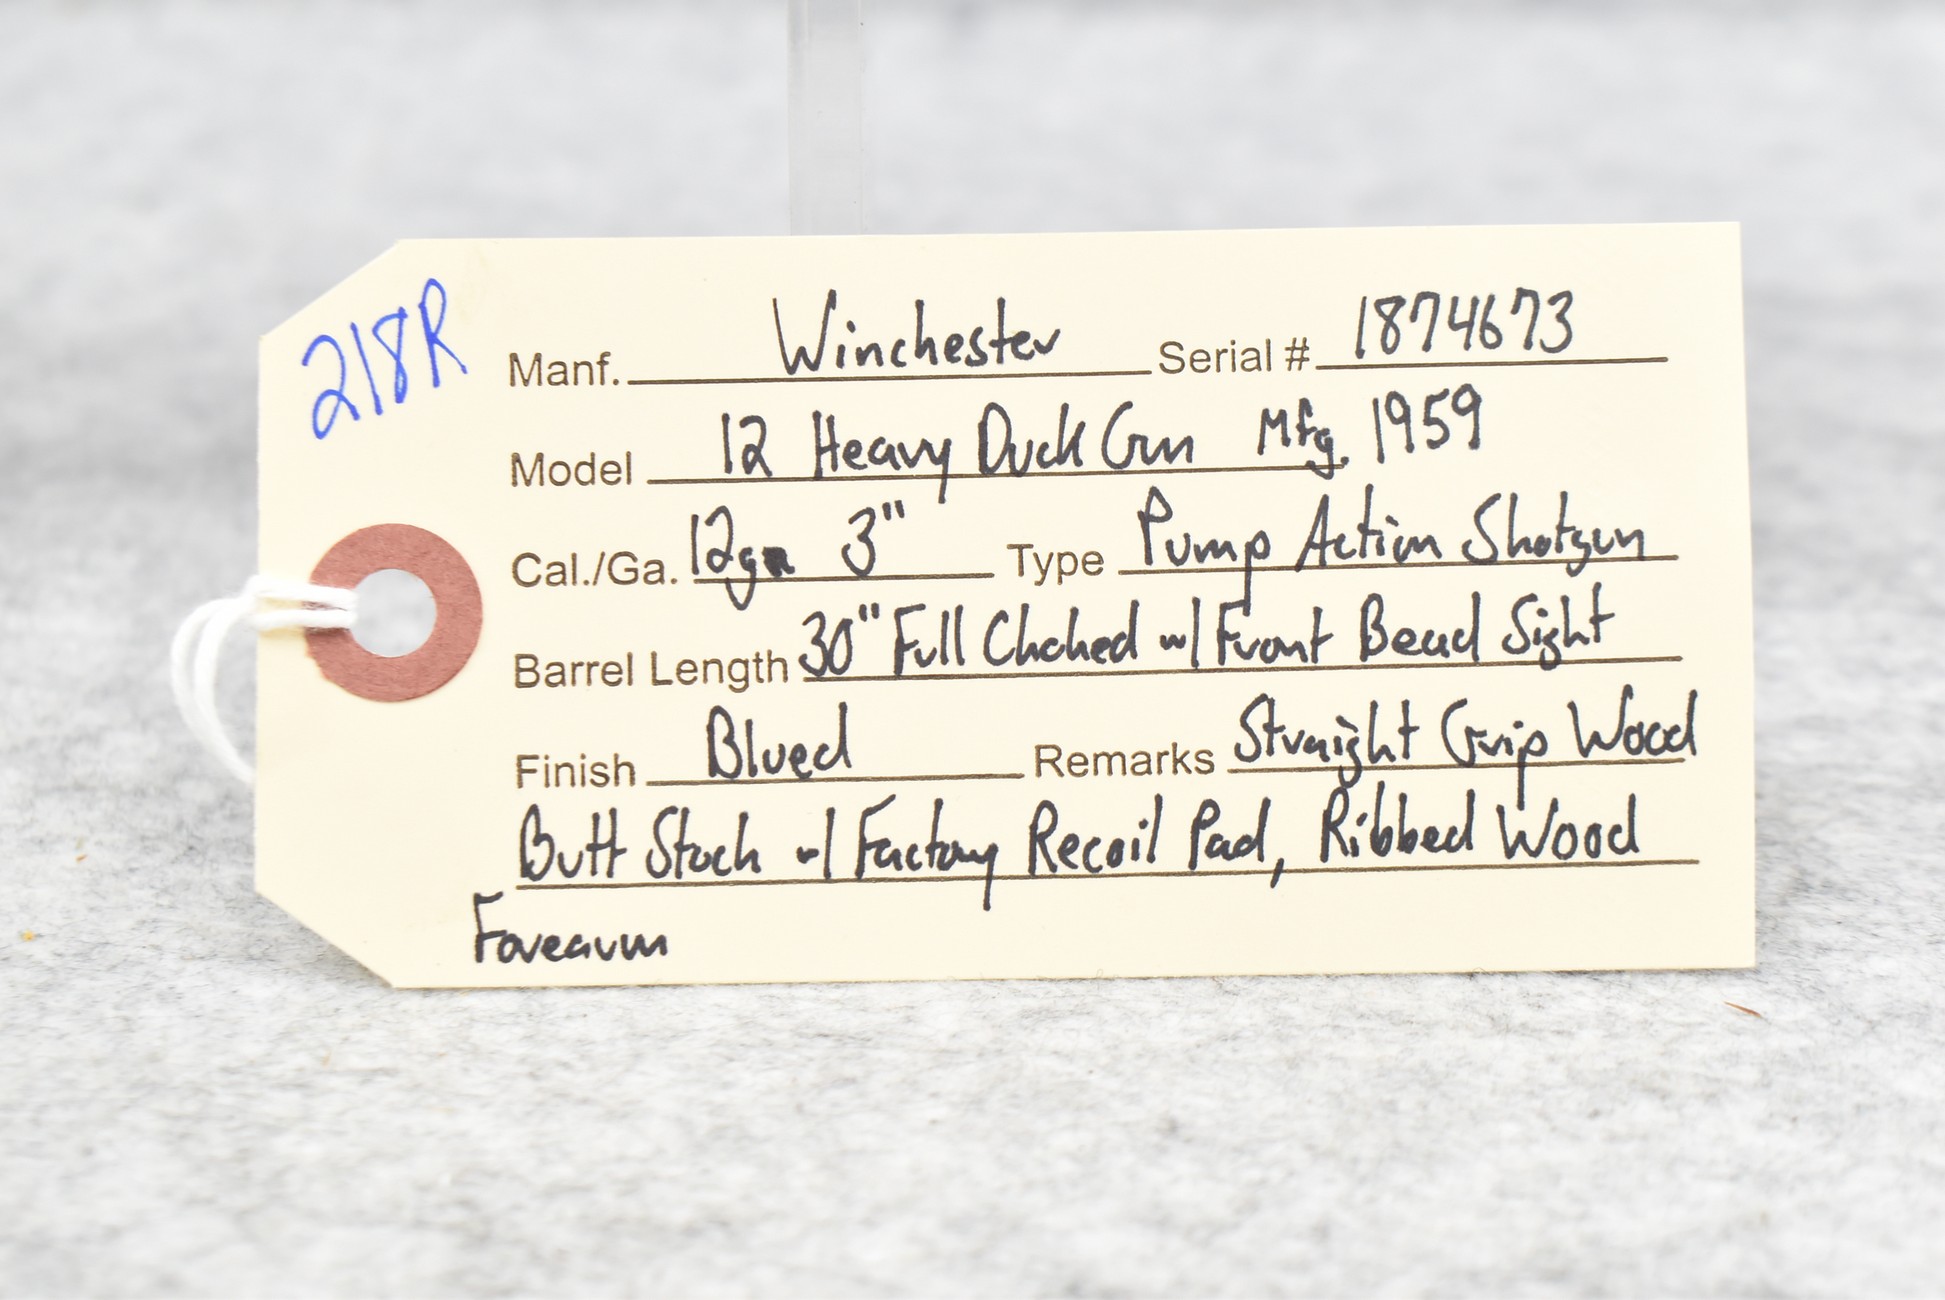 218R
Manf. Winchester Serial # 1874673
Model 12 Heavy Duck Gun Mfg. 1959
Cal./Ga. 12ga 3" Type Pump Action Shotgun
Barrel Length 30" Full Choked w/ Front Bead Sight
Finish Blued Remarks Straight Grip Wood
Butt Stock w/ Factory Recoil Pad, Ribbed Wood
Forearm